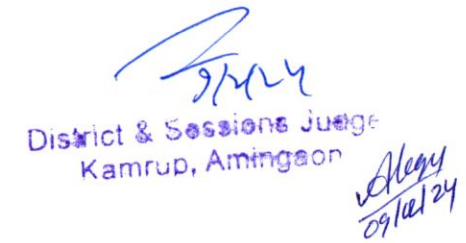 9/2/24
District & Sessions Judge
Kamrup, Amingaon
09/02/24